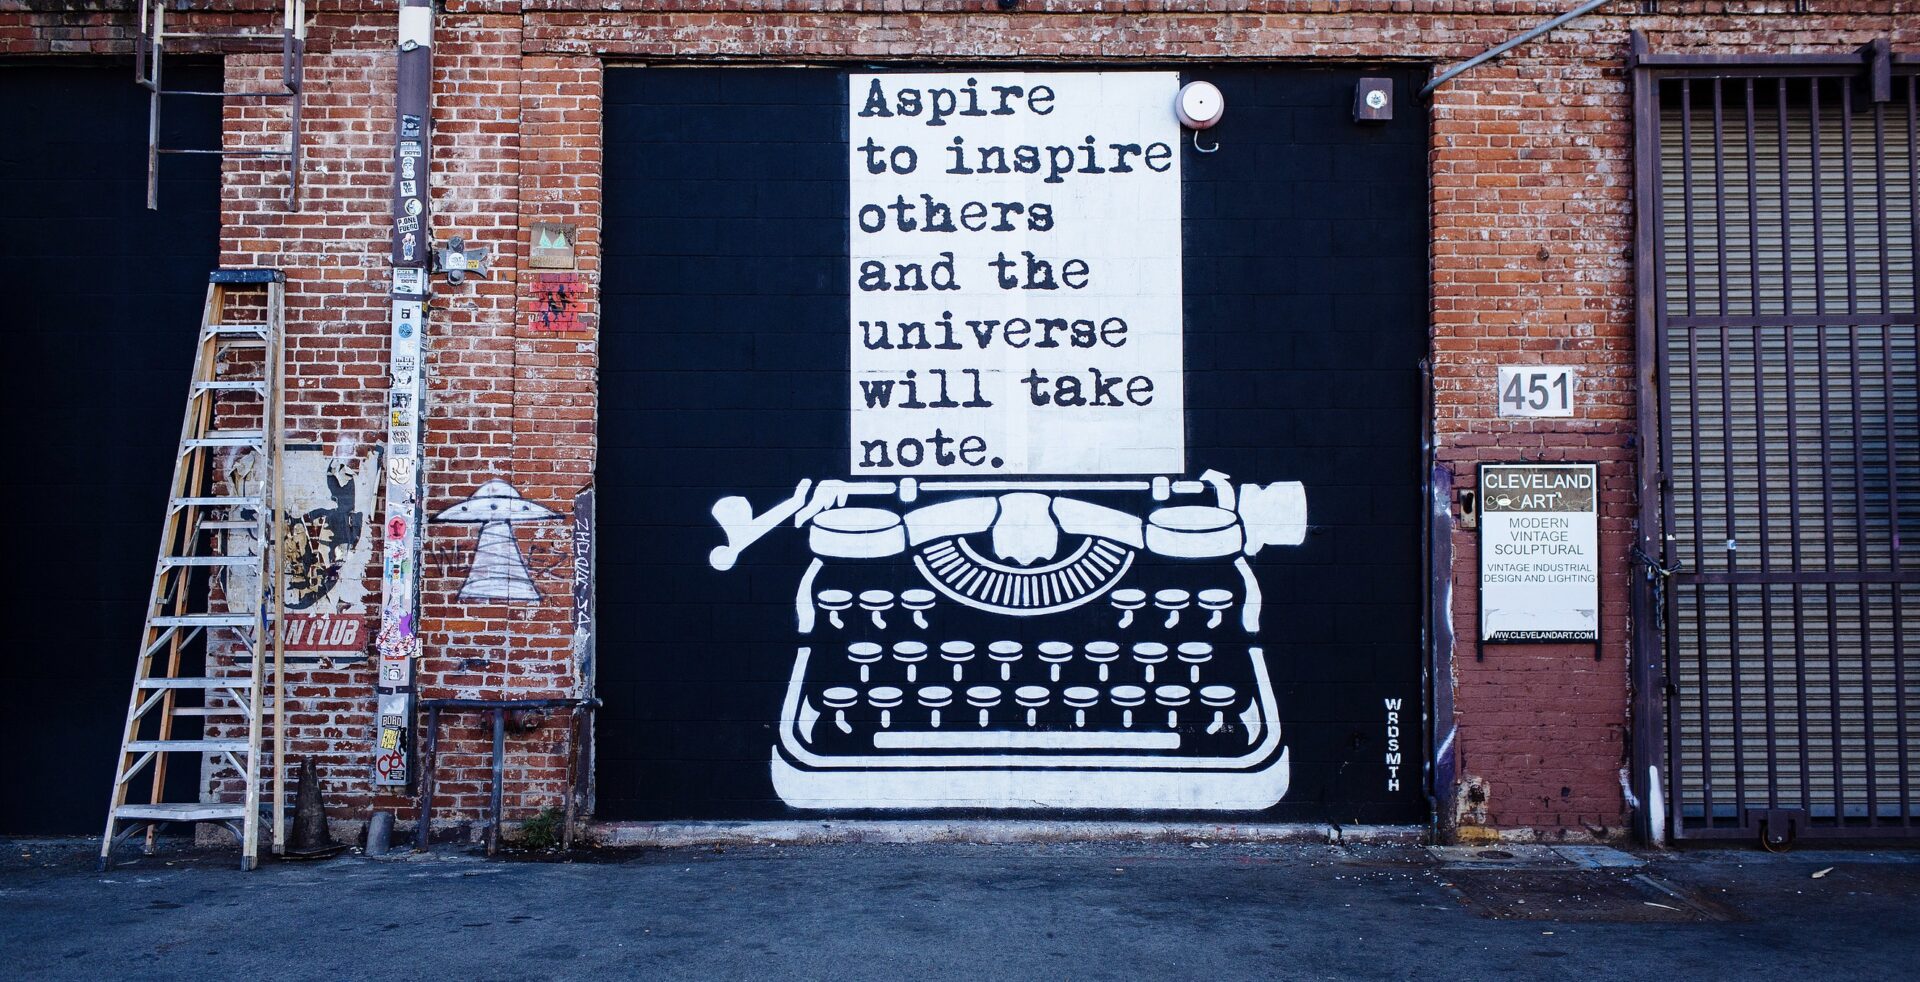 Aspire
to inspire
others
and the
universe
will take
note.
WRDSMTH
451
CLEVELAND
ART
MODERN
VINTAGE
SCULPTURAL
VINTAGE INDUSTRIAL
DESIGN AND LIGHTING
WWW.CLEVELANDART.COM
AN CLUB